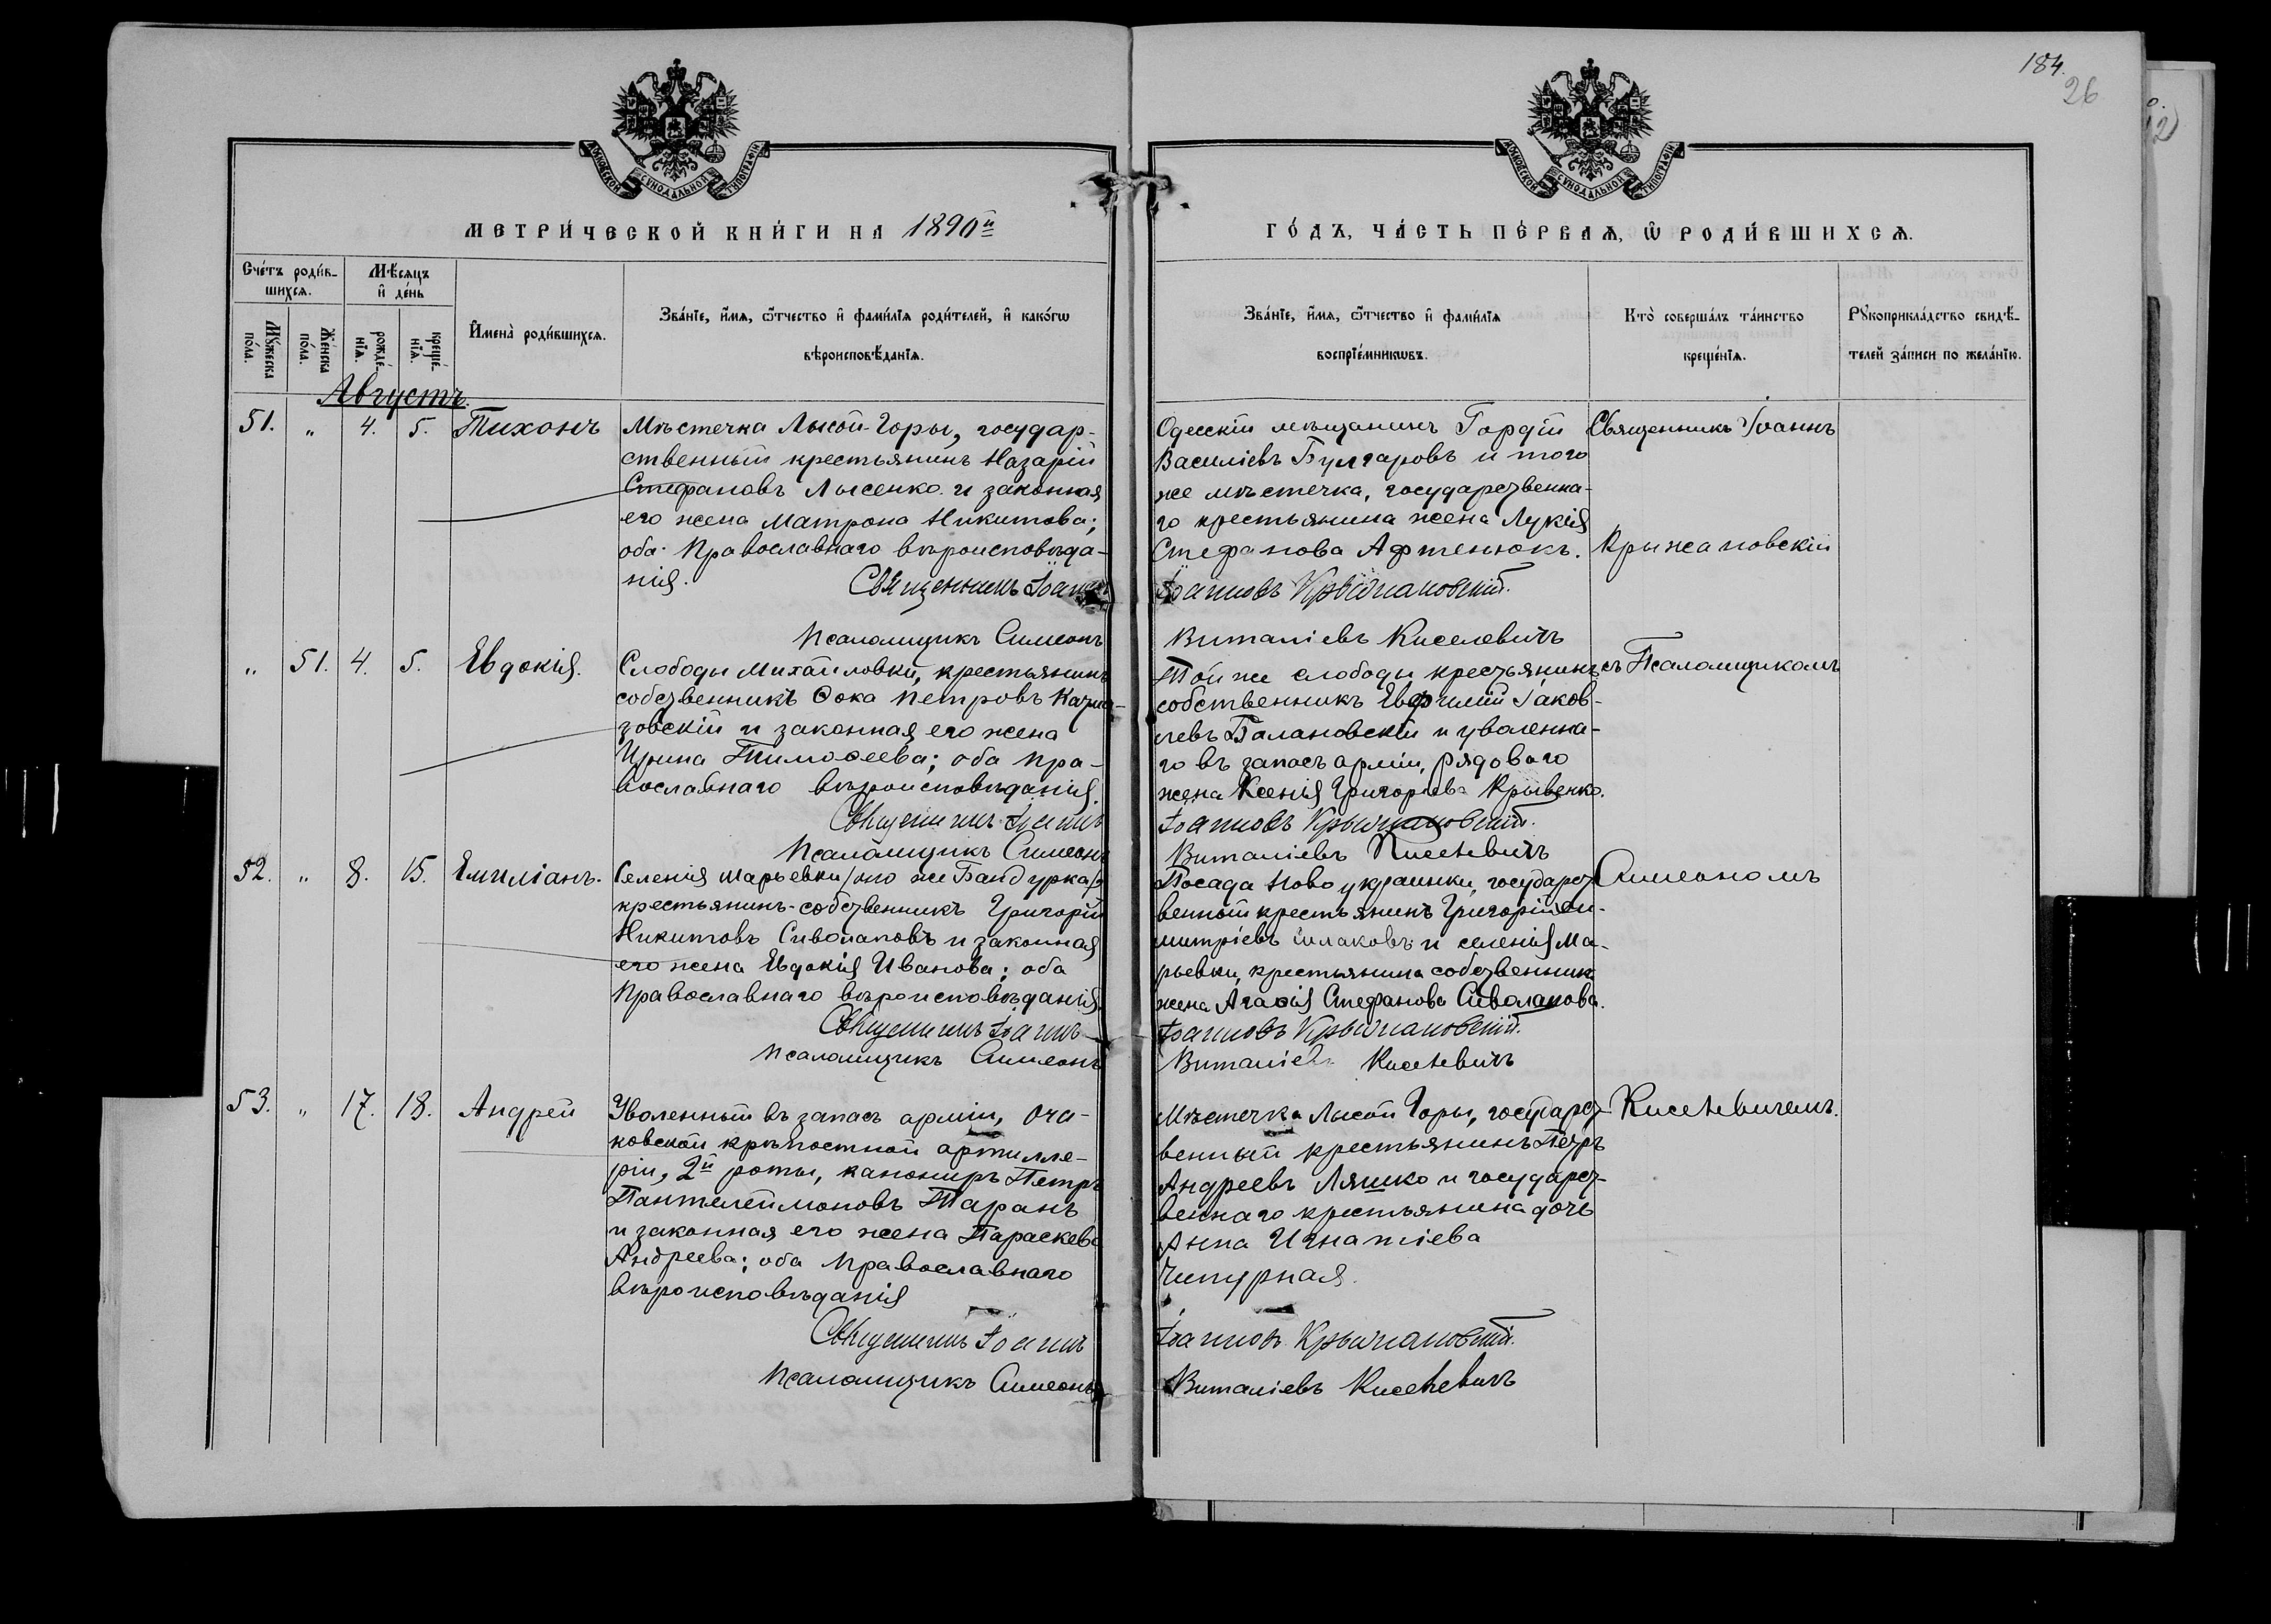 184.
26
МОСКОВСКОЙ СѴНОДАЛЬНОЙ ТИПОГРАФІИ
МОСКОВСКОЙ СѴНОДАЛЬНОЙ ТИПОГРАФІИ
МЕТРИ́ЧЕСКОЙ КНИ́ГИ НА 1890й
ГО́ДЪ, ЧА́СТЬ ПЕ́РВАѦ, Ѽ РОДИ́ВШИХСѦ.
Сче́тъ роди́в-
шихсѧ.
Мꙋ́жеска по́ла.
Же́нска по́ла.
Мѣ́сѧцъ и҆ де́нь
рожде́-нїѧ.
креще́-нїѧ.
И҆мена̀ роди́вшихсѧ.
Зва́нїе, и҆́мѧ, ѻ҆́тчество и҆ фами́лїѧ роди́телей, и҆ како́гѡ
вѣроисповѣ́данїѧ.
Зва́нїе, и҆́мѧ, ѻ҆́тчество и҆ фами́лїѧ
воспрїе́мникѡвъ.
Кто̀ соверша́лъ та́инство
креще́нїѧ.
Рꙋкоприкла́дство свидѣ́-
телей за́писи по жела́нїю.
Августъ.
51. „ 4. 5. Тихонъ
Мѣстечка Лысой-Горы, государ-
ственный крестьянинъ Назарій
Стефановъ Лысенко и законная
его жена Матрона Никитова;
оба Православнаго вѣроисповѣда-
нія.
Священникъ Іоаннъ
Псаломщикъ Симеонъ
Одесскій мѣщанинъ Гордій
Василіевъ Булгаровъ и того
же мѣстечка, государственна-
го крестьянина жена Лукія
Стефанова Афтенюкъ.
Іоанновъ Крыжановскій.
Виталіевъ Киселевичъ
Священникъ Іоаннъ
Крыжановскій
„ 51. 4. 5. Евдокія.
Слободы Михайловки, крестьянинъ
собственникъ Ѳока Петровъ
зовскій и законная его жена
Ирина Тимоѳеева; оба Пра-
вославнаго вѣроисповѣданія.
Священникъ Іоаннъ
Псаломщикъ Симеонъ
Той же слободы крестьянинъ
собственникъ Евфимій Іаков-
левъ Балановскій и уволенна-
го въ запасъ арміи, рядового
жена Ксенія Григорьева Крывенко.
Іоанновъ Крыжановскій.
Виталіевъ Киселевичъ
съ Псаломщикомъ
52. „ 8. 15. Емиліанъ.
Селенія Марьевки /оно же Бандурка/,
крестьянинъ-собственникъ Григорій
Никитовъ Сиволаповъ и законная
его жена Евдокія Иванова; оба
Православнаго вѣроисповѣданія.
Священникъ Іоаннъ
Псаломщикъ Симеонъ
Посада Новоукраинки, государст-
венный крестьянинъ Григорій Ди-
митріевъ и селенія Ма-
рьевки, крестьянина собственник
жена Агаѳія Стефанова Сиволапова.
Іоанновъ Крыжановскій.
Виталіевъ Киселевичъ
Симеономъ
53. „ 17. 18. Андрей
Уволенный въ запасъ арміи, Оча-
ковской крѣпостной артилле-
ріи, 2й роты, канониръ Петръ
Пантелеймоновъ Таранъ
и законная его жена Параскева
Андреева; оба Православнаго
вѣроисповѣданія
Священникъ Іоаннъ
Псаломщикъ Симеонъ
Мѣстечка Лысой Горы, государст-
венный крестьянинъ Петръ
Андреевъ Ляшко и государст-
веннаго крестьянина дочь
Анна Игнатіева
Чепурная.
Іоанновъ Крыжановскій.
Виталіевъ Киселевичъ
Киселевичемъ.